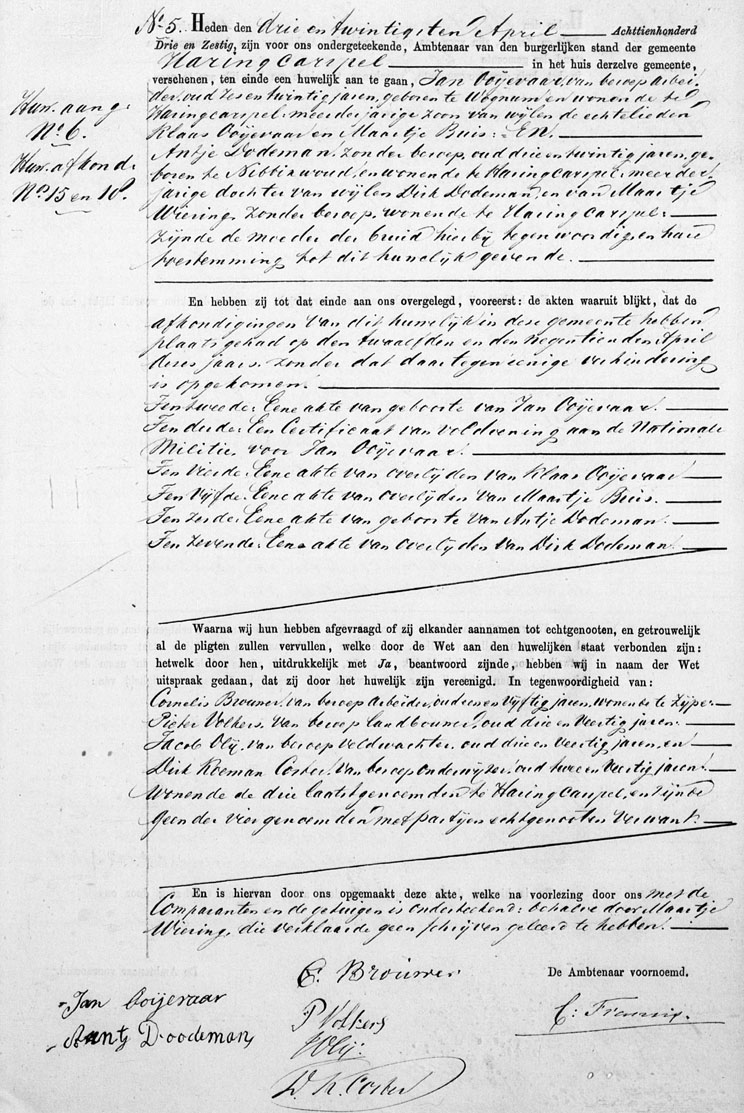 No. 5. Heden den drie en twintigsten April Achttienhonderd
Drie en Zestig, zijn voor ons ondergeteekende, Ambtenaar van den burgerlijken stand der gemeente
Haringcarspel in het huis derzelve gemeente,
verschenen, ten einde een huwelijk aan te gaan, Jan Ooijevaar, van beroep arbei-
der, oud zes en twintig jaren, geboren te Wognum en wonende te
Haringcarspel, meerderjarige zoon van wijlen de echtelieden
Klaas Ooijevaar en Maartje Buis: EN.
Antje Dodeman, zonder beroep, oud drie en twintig jaren, ge-
boren te Nibbixwoud, en wonende te Haringcarspel, meerder-
jarige dochter van wijlen Dirk Dodeman, en van Maartje
Wiering, zonder beroep, wonende te Haringcarspel:
zijnde de moeder der bruid hierbij tegenwoordig en hare
toestemming tot dit huwelijk gevende.
Huw. aang:
No. 6.
Huw. afkond:
No. 15 en 18.
En hebben zij tot dat einde aan ons overgelegd, vooreerst: de akten waaruit blijkt, dat de
afkondigingen van dit huwelijk in deze gemeente hebben
plaats gehad op den twaalfden en den negentienden April
dezes jaars, zonder dat daartegen eenige verhindering
is opgekomen.
Ten tweede: Eene akte van geboorte van Jan Ooijevaar.
Ten derde: Een Certificaat van voldoening aan de Nationale
Militie, voor Jan Ooijevaar.
Ten vierde: Eene akte van overlijden van Klaas Ooijevaar
Ten vijfde: Eene akte van overlijden van Maartje Buis.
Ten zesde: Eene akte van geboorte van Antje Dodeman.
Ten zevende: Eene akte van overlijden van Dirk Dodeman.
Waarna wij hun hebben afgevraagd of zij elkander aannamen tot echtgenooten, en getrouwelijk
al de pligten zullen vervullen, welke door de Wet aan den huwelijken staat verbonden zijn:
hetwelk door hen, uitdrukkelijk met Ja, beantwoord zijnde, hebben wij in naam der Wet
uitspraak gedaan, dat zij door het huwelijk zijn vereenigd. In tegenwoordigheid van:
Cornelis Brouwer, van beroep arbeider, oud een en vijftig jaren, wonende te Zijpe:
Pieter Volkers, van beroep landbouwer, oud drie en veertig jaren:
Jacob Olij, van beroep veldwachter, oud drie en veertig jaren, en
Dirk Koeman Coster, van beroep onderwijzer, oud twee en veertig jaren:
wonende de drie laatstgenoemden te Haringcarspel, en zijnde
geen der vier genoemden met partijen echtgenooten verwant.
En is hiervan door ons opgemaakt deze akte, welke na voorlezing door ons met de
Comparanten en de getuigen is onderteekend: behalve door Maartje
Wiering, die verklaarde geen schrijven geleerd te hebben.
C. Brouwer
De Ambtenaar voornoemd.
Jan Ooijevaar
P Volkers
Aantj Doodeman
J Olij.
D. K. Coster